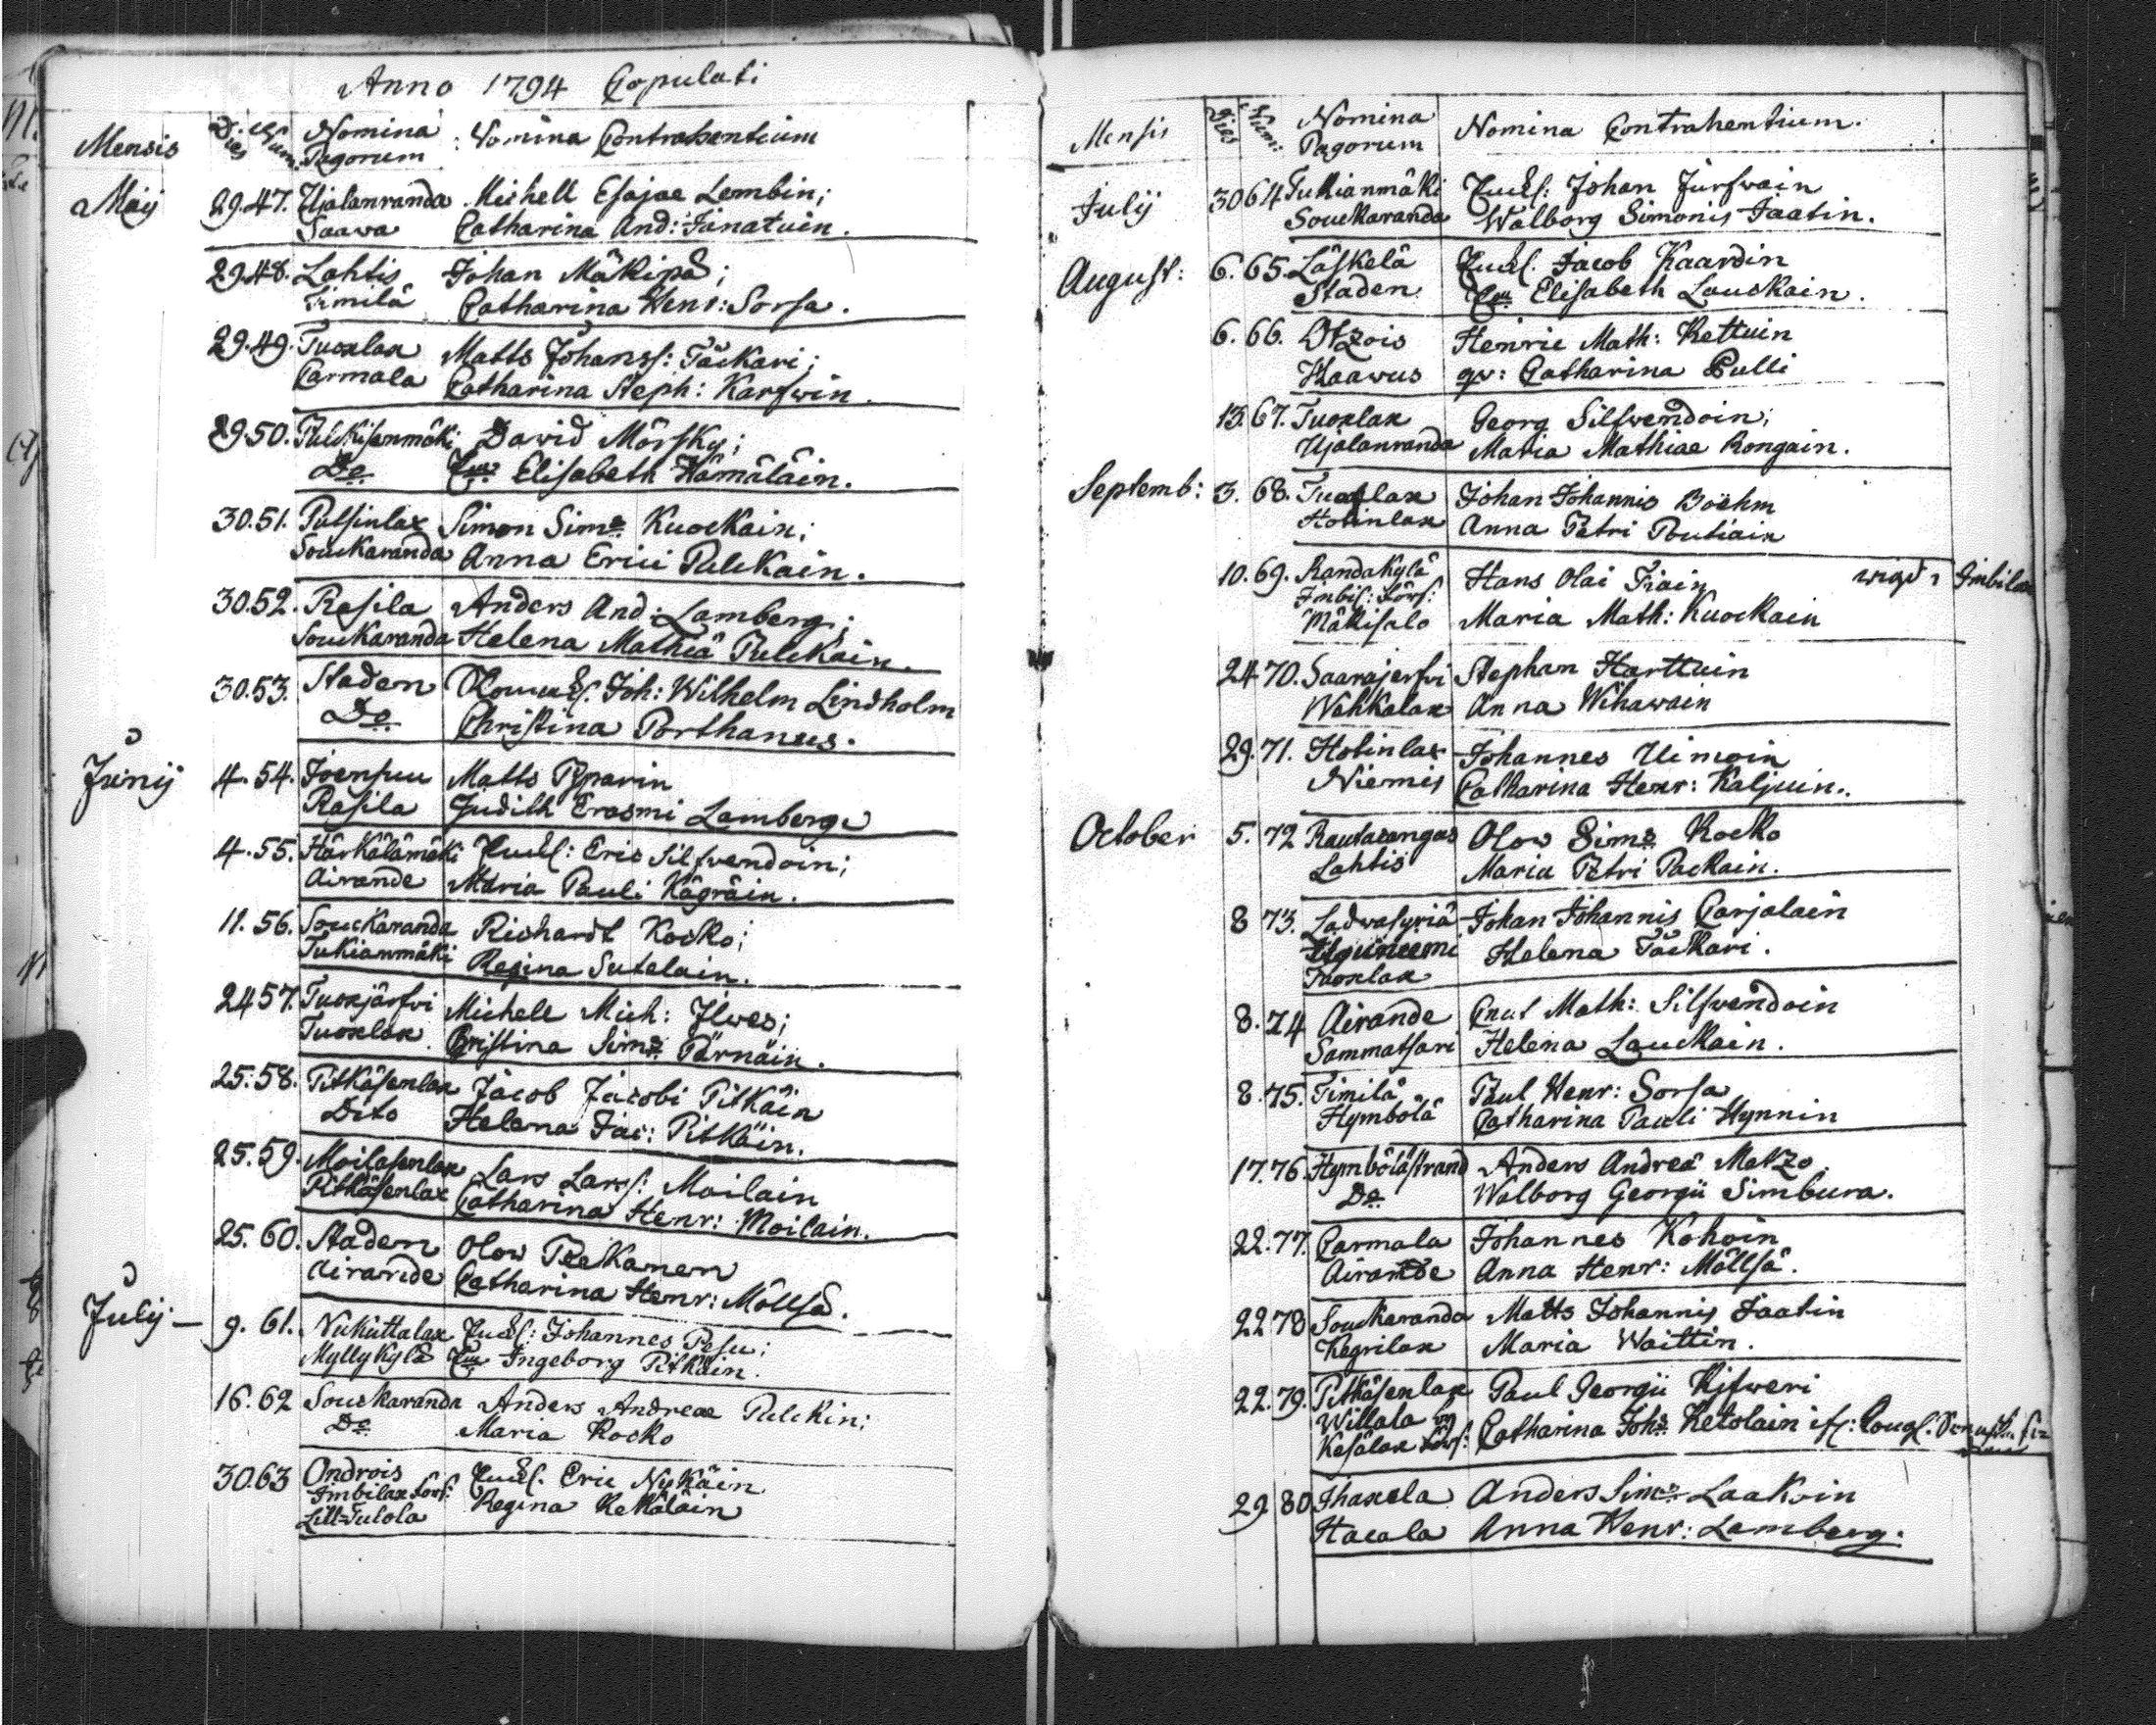 Anno 1794 Copulati
Mensis Dies Num: Nomina Pagorum Nomina Contrahentium
Maij 29. 47. Ujalanranda Michell Esajae Lembin;
Saawa Catharina And: Jänatuin.
29. 48. Lahtis Johan Mäkipä;
Timilä Catharina Henr: Sorsa.
29. 49. Tuoxlax Matts Johanss: Täckari;
Carmala Catharina Steph: Karfwin.
29. 50. Pulckisenmäki David Mörsky;
Do Elisabeth Hämäläin.
30. 51. Putsinlax Simon Sims Kuockain;
Souckaranda Anna Erici Pulckain.
30. 52. Rasila Anders And: Lamberg;
Souckaranda Helena Mathiä Pulckain.
30. 53. Staden Joh: Wilhelm Lindholm
Do Christina Porthanus.
Junij 4. 54. Joensuu Matts Pyparin
Rasila Judith Erasmi Lamberg
4. 55. Härkälämäki Eric Silfvendoin;
Airande Maria Pauli Kägräin.
11. 56. Souckaranda Richardt Kocko;
Tukianmäki Regina Sutelain.
24 57. Tuoxjärfvi Michell Mich: Ilves;
Tuoxlax Christina Sims Pärnäin.
25. 58. Pitkäsenlax Jacob Jacobi Pitkäin
Dito Helena Jac: Pitkäin.
25. 59. Moilasenlax Lars Larss: Moilain
Pitkäsenlax Catharina Henr: Moilain.
25. 60. Staden Olow Peckanen
Airande Catharina Henr: Möllsä.
Julij 9. 61. Nukuttalax Johannes Pesu;
Myllykylä Ingeborg Pitkäin.
16. 62 Souckaranda Anders Andreae Pulckin;
Do Maria Kocko
30. 63 Ondrois Eric Nykäin
Imbilax Förs: Regina Kekäläin
Lill-Tulola
Mensis Dies Num: Nomina Pagorum Nomina Contrahentium.
Julij 30 64 Tukianmäki Johan Jürfwain
Souckaranda Walborg Simonis Jaatin.
August: 6. 65. Läskelä Jacob Kaardin
Staden Elisabeth Louckain.
6. 66. Otzois Henric Math: Kettuin
Haawus qv: Catharina Pulli
13. 67. Tuoxlax Georg Silfwendoin;
Ujalanranda Maria Mathiae Rongain.
Septemb: 3. 68. Tuoxlax Johan Johannis Boëhm
Hotinlax Anna Petri Poutiain
10. 69. Randakylä Hans Olai Tiain wigd i Imbilax
Imbil: Förs:
Mäkisalo Maria Math: Kuockain
24 70. Saarajerfvi Stephan Harttuin
Wahkalax Anna Wihawain
29. 71. Hotinlax Johannes Uimoin
Niemis Catharina Henr: Kaljuin.
October 5. 72 Rautacangas Olow Sims Kocko
Lahtis Maria Petri Packain.
8 73. Ladwasyriä Johan Johannis Carjalain
Helena Täckari.
Tuoxlax
8. 74 Airande Cnut Math: Silfvendoin
Sammatsari Helena Lauckain.
8. 75. Timilä Paul Henr: Sorsa
Hymbölä Catharina Pauli Hynnin
17. 76. Hymbölästrand Anders Andreä Metzo.
Do Walborg Georgii Simbura.
22. 77. Carmala Johannes Kohoin
Airande Anna Henr: Möllsä.
22 78 Souckaranda Matts Johannis Jaatin
Kegrilax Maria Waittin.
22. 79. Pitkäsenlax Paul Georgii Kifweri
Willala
Kesälax Förs: Catharina Johs Ketolain
29. 80 Ihaxela Anders Sims Laakoin
Hacala Anna Henr: Lamberg.